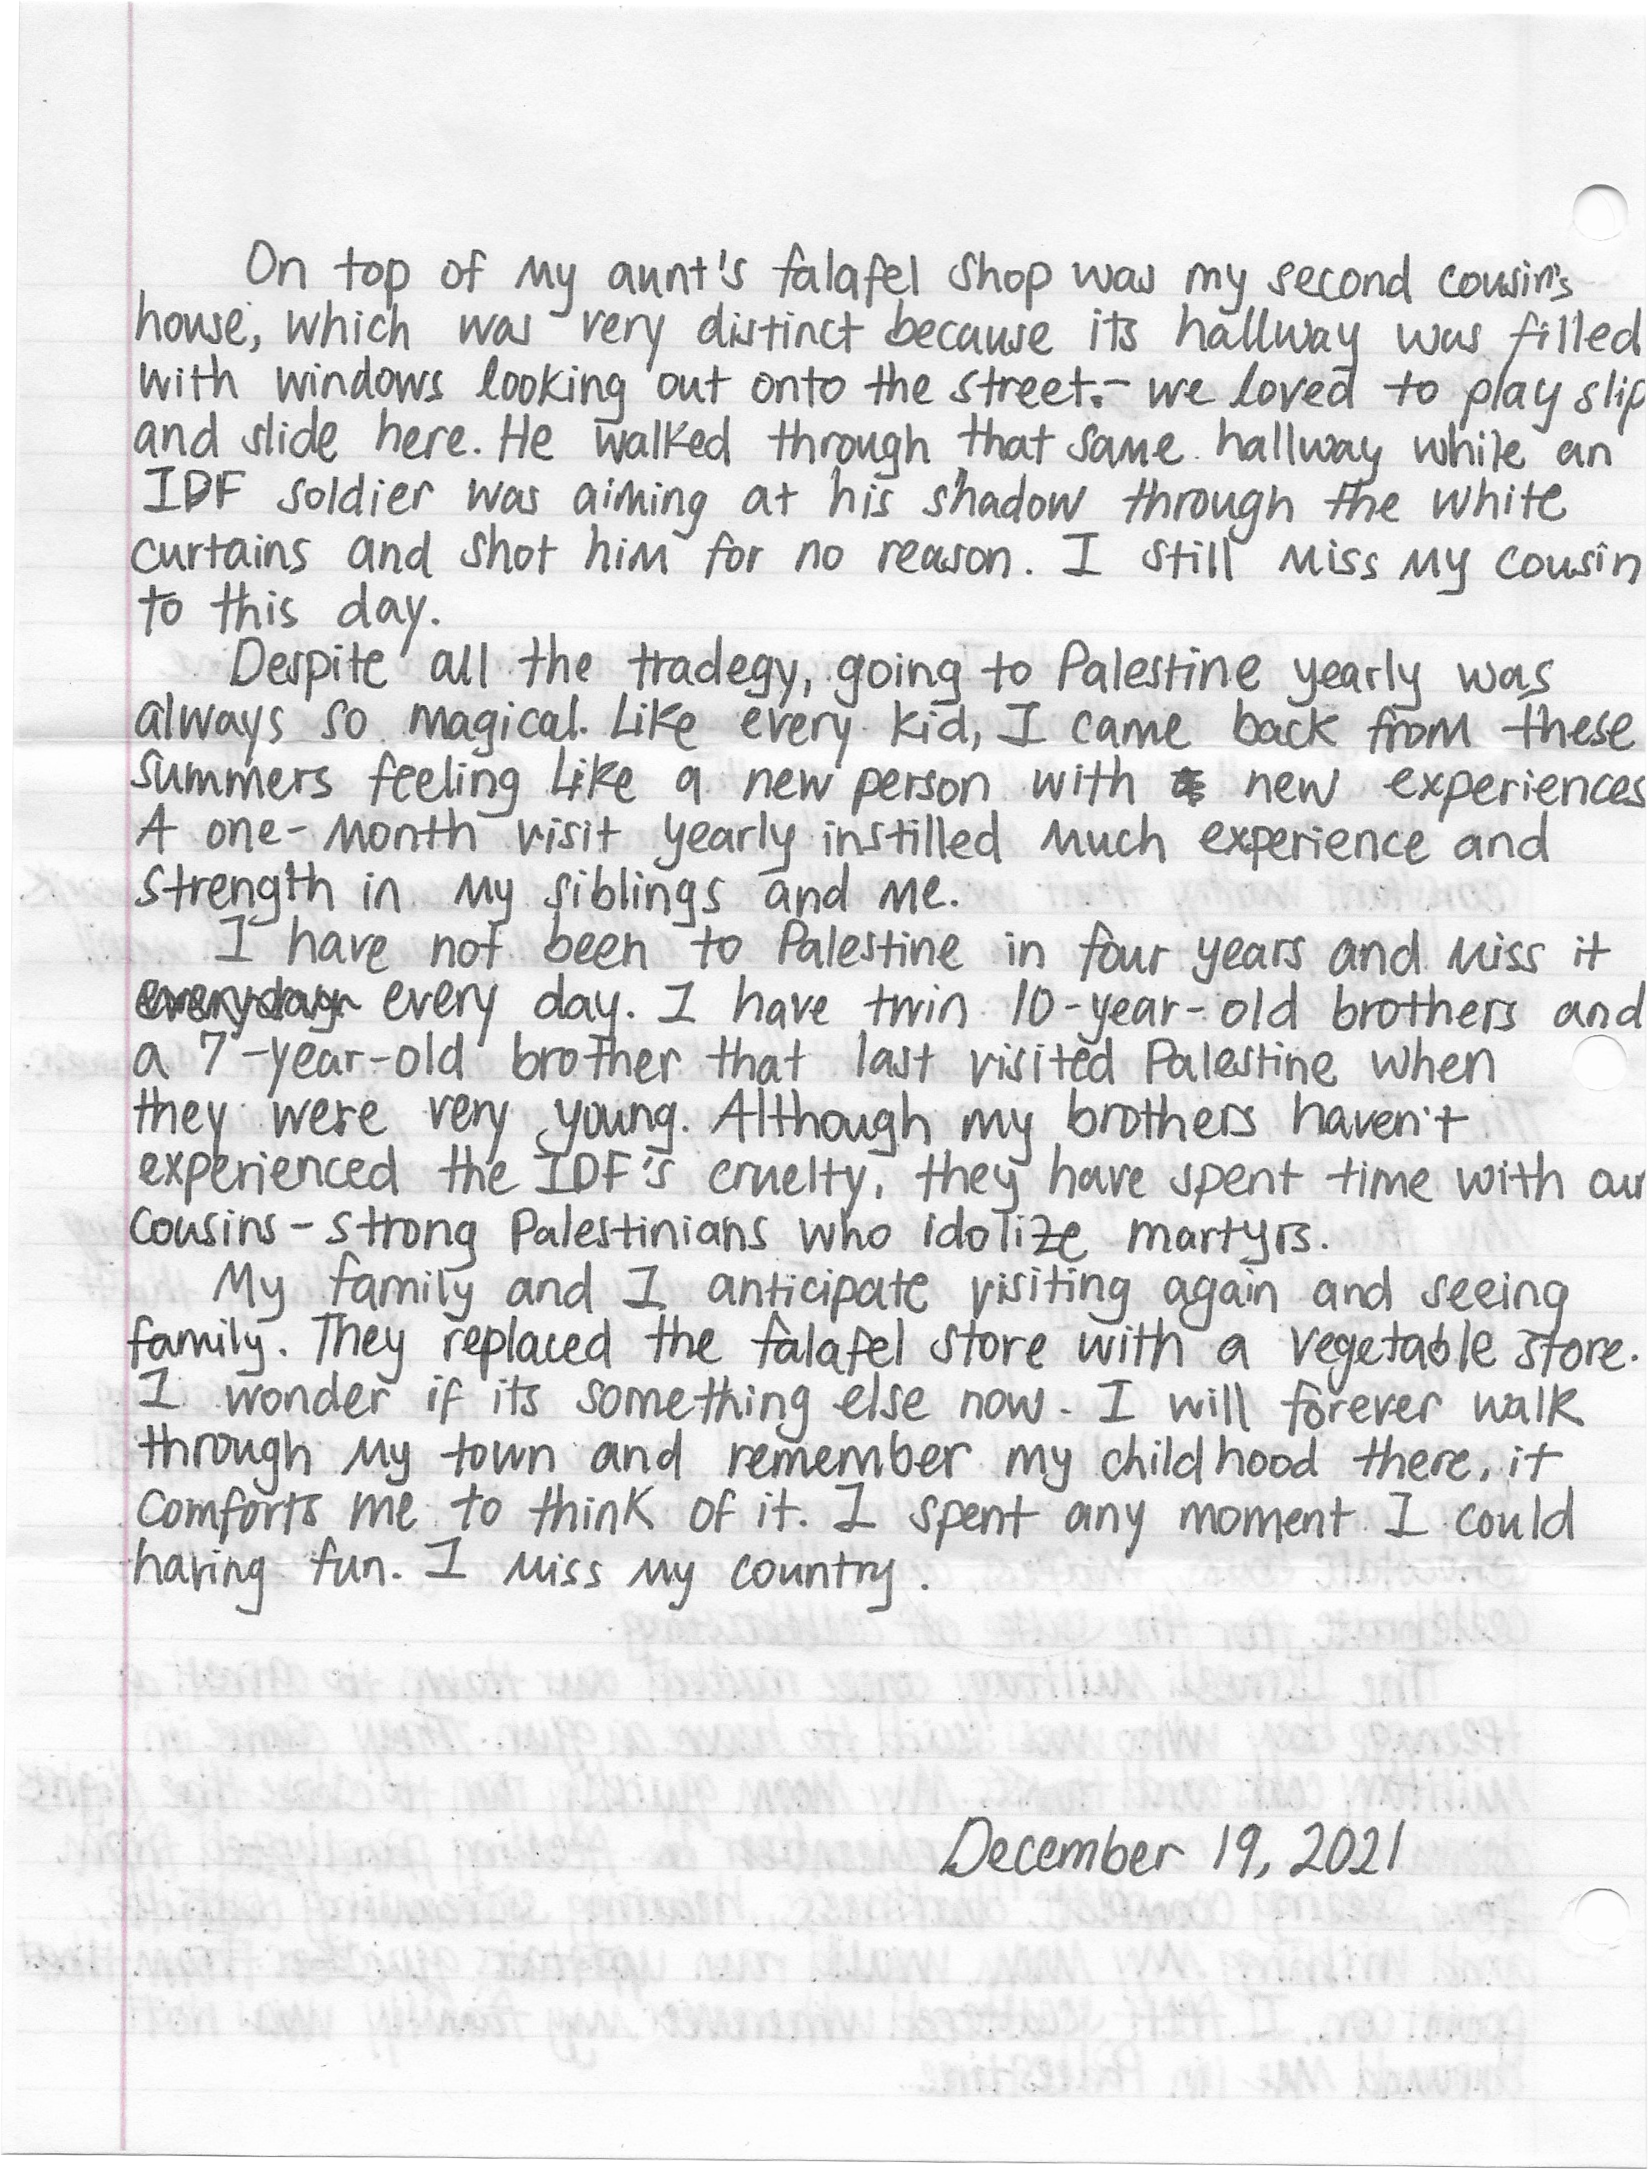 On top of my aunt's falafel shop was my second cousin's
house, which was very distinct because its hallway was filled
with windows looking out onto the street. - we loved to play slip
and slide here. He walked through that same hallway while an
IDF soldier was aiming at his shadow through the white
curtains and shot him for no reason. I still miss my cousin
to this day.
Despite all the tradegy, going to Palestine yearly was
always so magical. Like every kid, I came back from these
summers feeling like a new person with new experiences
A one-month visit yearly instilled much experience and
strength in my siblings and me.
I have not been to Palestine in four years and miss it
everyday every day. I have twin 10-year-old brothers and
a 7-year-old brother that last visited Palestine when
they were very young. Although my brothers haven't
experienced the IDF's cruelty, they have spent time with our
cousins - strong Palestinians who idolize martyrs.
My family and I anticipate visiting again and seeing
family. They replaced the falafel store with a vegetable store.
I wonder if its something else now. I will forever walk
through my town and remember my childhood there, it
comforts me to think of it. I spent any moment I could
having fun. I miss my country.
December 19, 2021